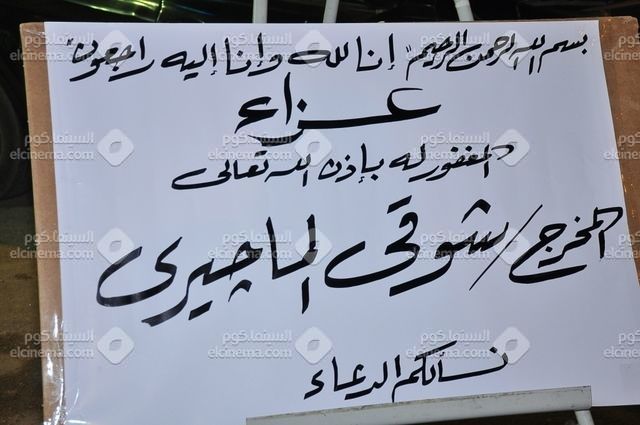 بسم الله الرحمن الرحيم "إنا لله وإنا إليه راجعون"
عزاء
المغفور له بإذن الله تعالى
المخرج / شوقى الماچيرى
نسألكم الدعاء
السينما.كوم
elcinema.com